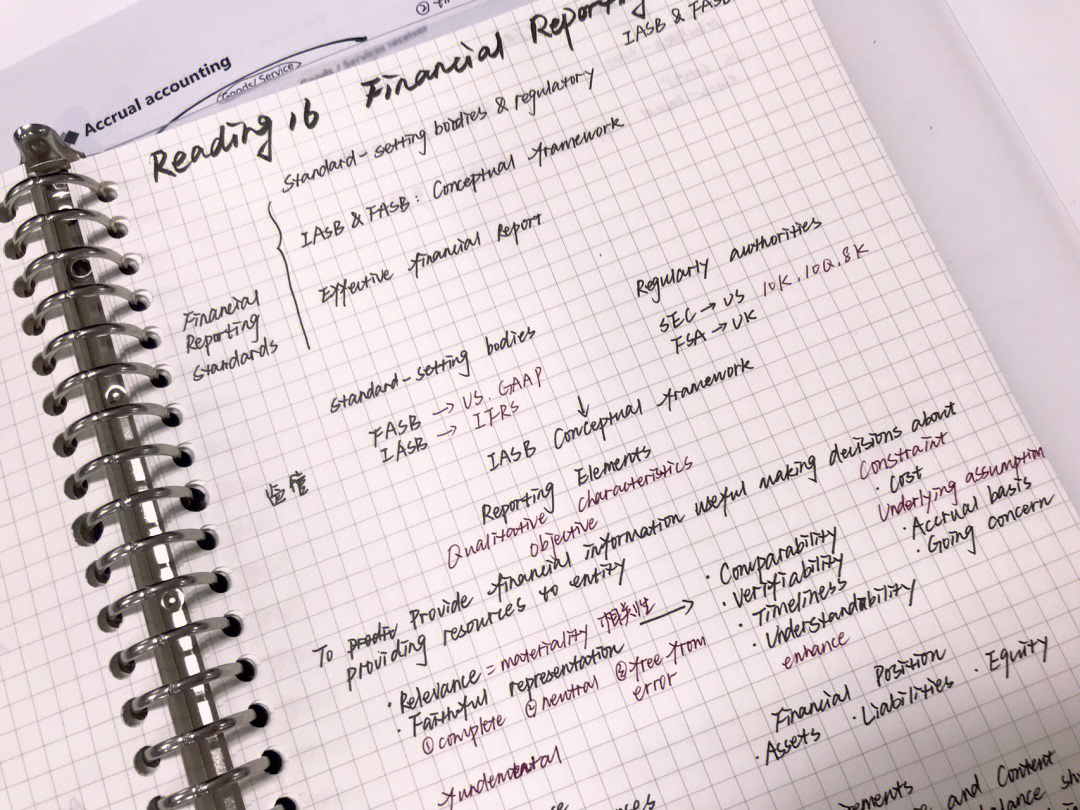 Accrual accounting
Goods/Service
Goods / Services receiver
Reading 16 Financial Reporting
IASB & FASB
Standard-setting boidies & regulatory
IASB & FASB: Conceptual framework
Effective financial Report
Financial
Reporting
Standards
Standard-setting bodies
FASB → US. GAAP
IASB → IFRS
Regularly authorities
SEC → US 10K. 10Q. 8K
FSA → UK
↓
IASB Conceptual framework
监管
Reporting Elements
Qualitative characteristics
Objective
To Provide financial information useful making decisions about
providing resources to entity
Constraint
· Cost
Underlying assumption
· Accrual basis
· Going concern
· Relevance = materiality 相关性 →
· Faithful representation
① complete ② neutral ③ free from
error
· Comparability
· Verifiability
· Timeliness
· Understandability
enhance
fundemental
Financial Position
· Assets · Liabilities · Equity
and Content